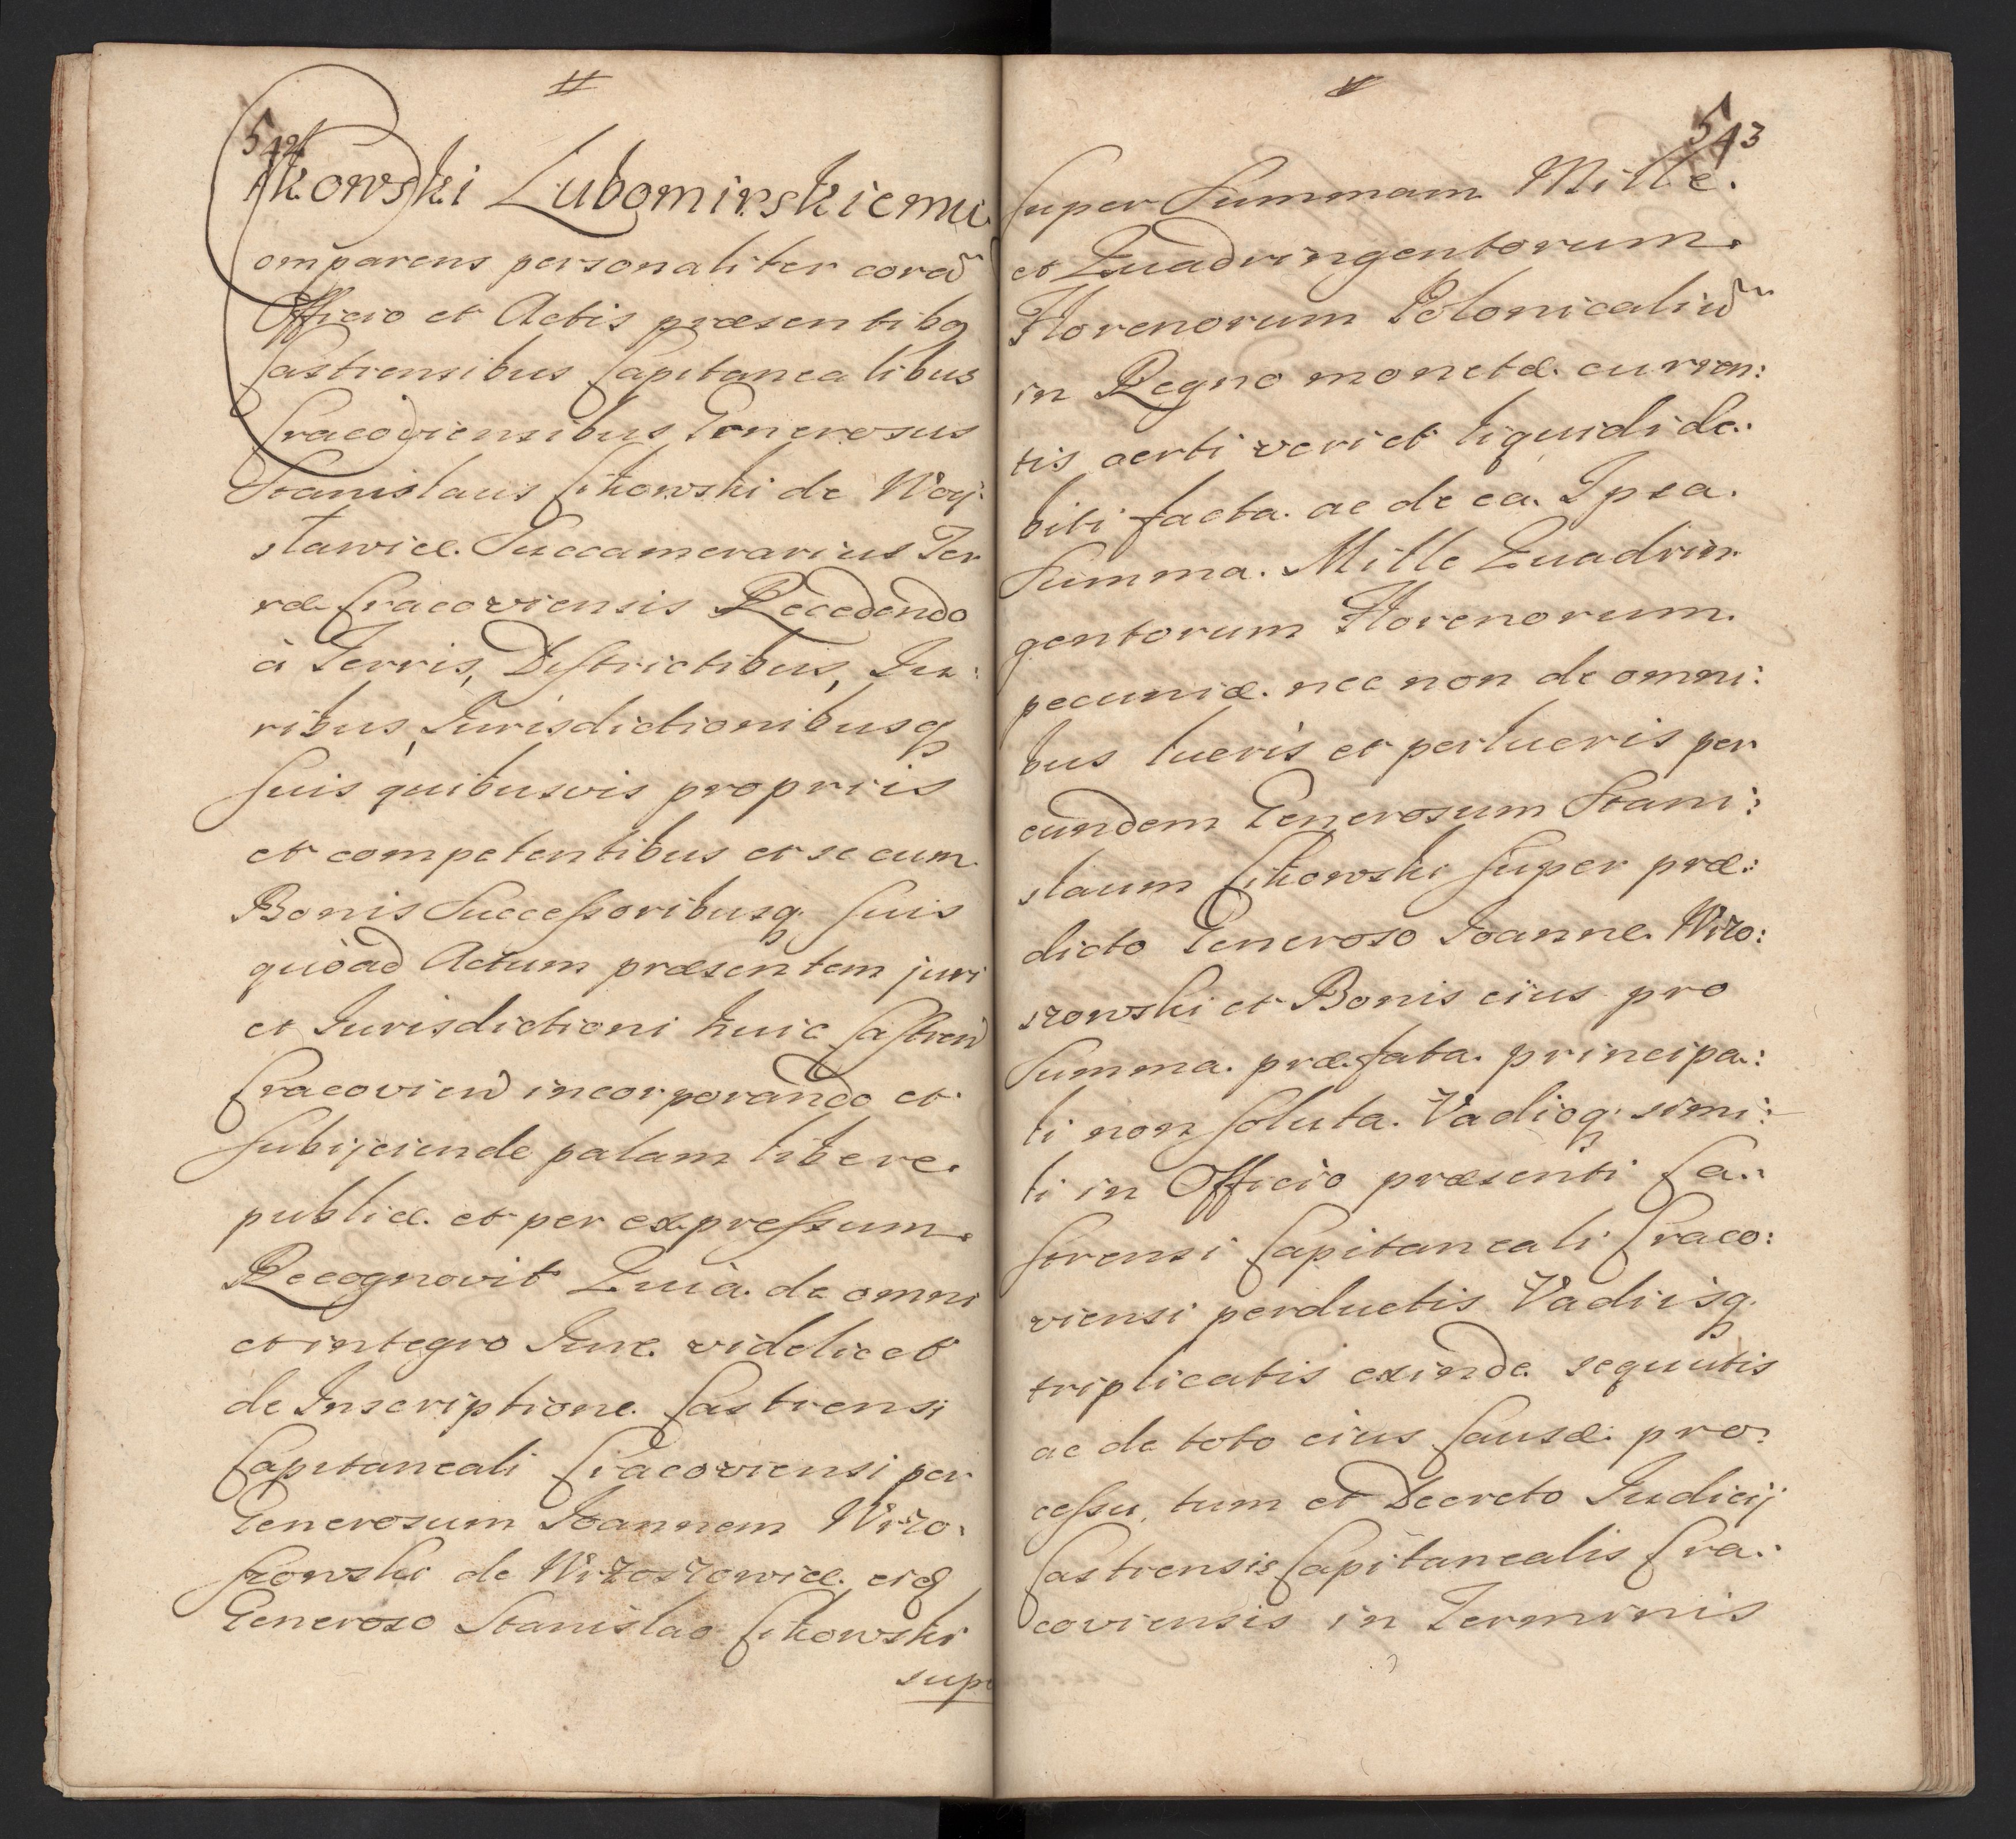 542
Cikowski Lubomirskiemu
Comparens personaliter corã
Officio et Actis præsentibq
Castrensibus Capitanealibus
Cracoviensibus Generosus
Stanislaus Cikowski de Woy:
sławice Succamerarius Ter
ræ Cracoviensis Recedendo
à Terris, Districtibus, Iu:
ribus, Iurisdictionibusq
suis quibusvis propriis
et competentibus et se cum
Bonis Successoribusq suis
quòad Actum præsentem juri
et Iurisdictioni huic Castren
Cracovien incorporando et
subijciendo palam libere
publice et per expressum
Recognovit Quia de omni
et integro Iure videlicet
de Inscriptione Castrensi
Capitaneali Cracoviensi per
Generosum Ioannem Wizo:
szowski de Wizoszowice eidẽ
Generoso Stanislao Cikowski
supe
543
super Summam Mille
et Quadringentorum
Florenorum Polonicaliũ
in Regno monetæ curren:
tis certi veri et liquidi de:
biti facta ac de ea Ipsa
Summa Mille Quadrin
gentorum Florenorum
pecuniæ nec non de omni:
bus lucris et perlucris per
eundem Generosum Stani:
slaum Cikowski super præ:
dicto Generoso Ioanne Wizo:
szowski et Bonis eius pro
Summa præfata principa:
li non soluta Vadioq simi:
li in Officio præsenti Ca:
strensi Capitaneali Craco:
viensi perductis Vadiisq
triplicatis exinde sequutis
ac de toto eius Causæ pro:
cessu, tum et Decreto Iudicij
Castrensis Capitanealis Cra:
coviensis in Terminis